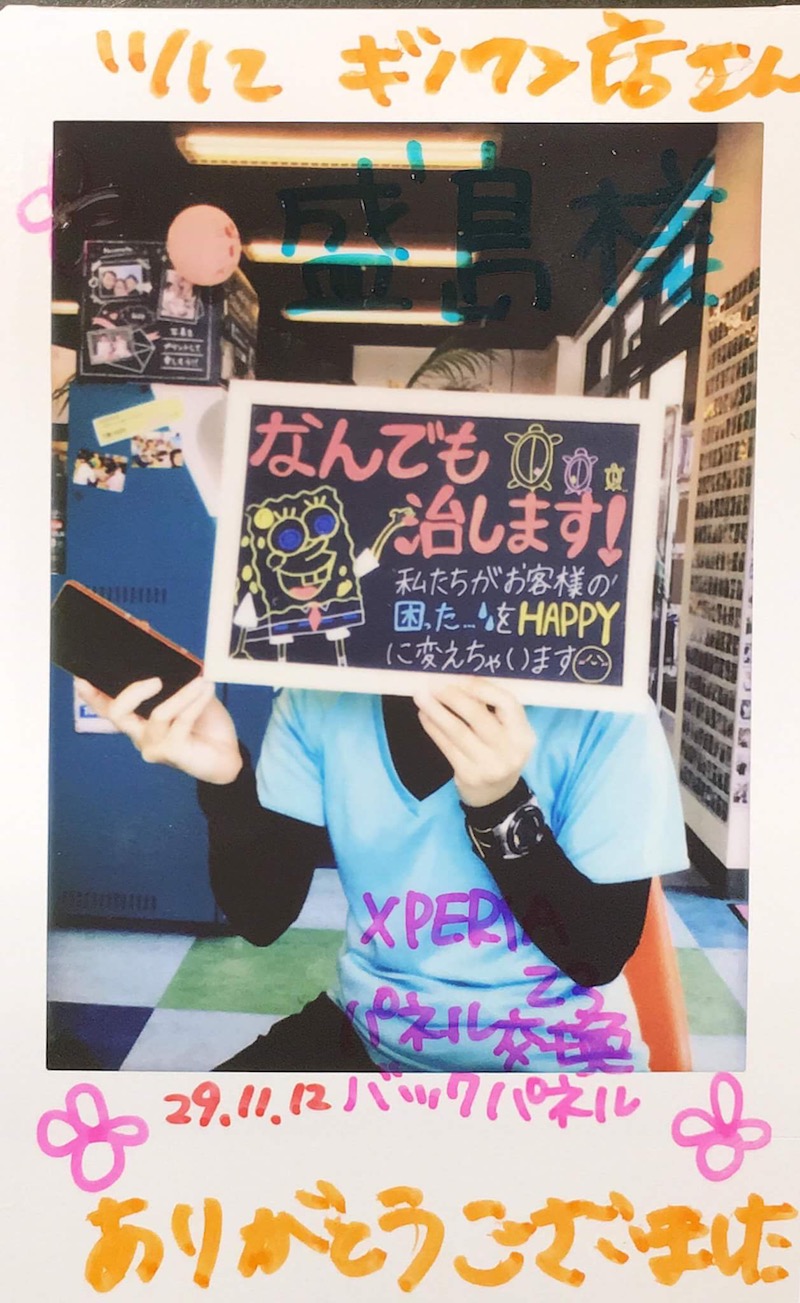 ツルて ギノワン店さん
盛島様
なんでも
治します!
私たちがお客様の
困った...をHAPPY
に変えちゃいます
XPERIA
Z3
パネル交換
29.11.12 バックパネル
ありがとうございました